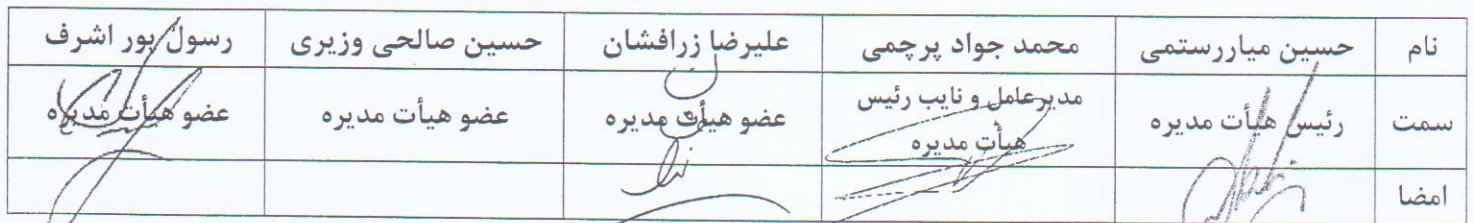 نام حسین میاررستمی محمد جواد پرچمی علیرضا زرافشان حسین صالحی وزیری رسول پور اشرف
سمت رئیس هیأت مدیره مدیرعامل و نایب رئیس هیأت مدیره عضو هیأت مدیره عضو هیأت مدیره عضو هیأت مدیره
امضا